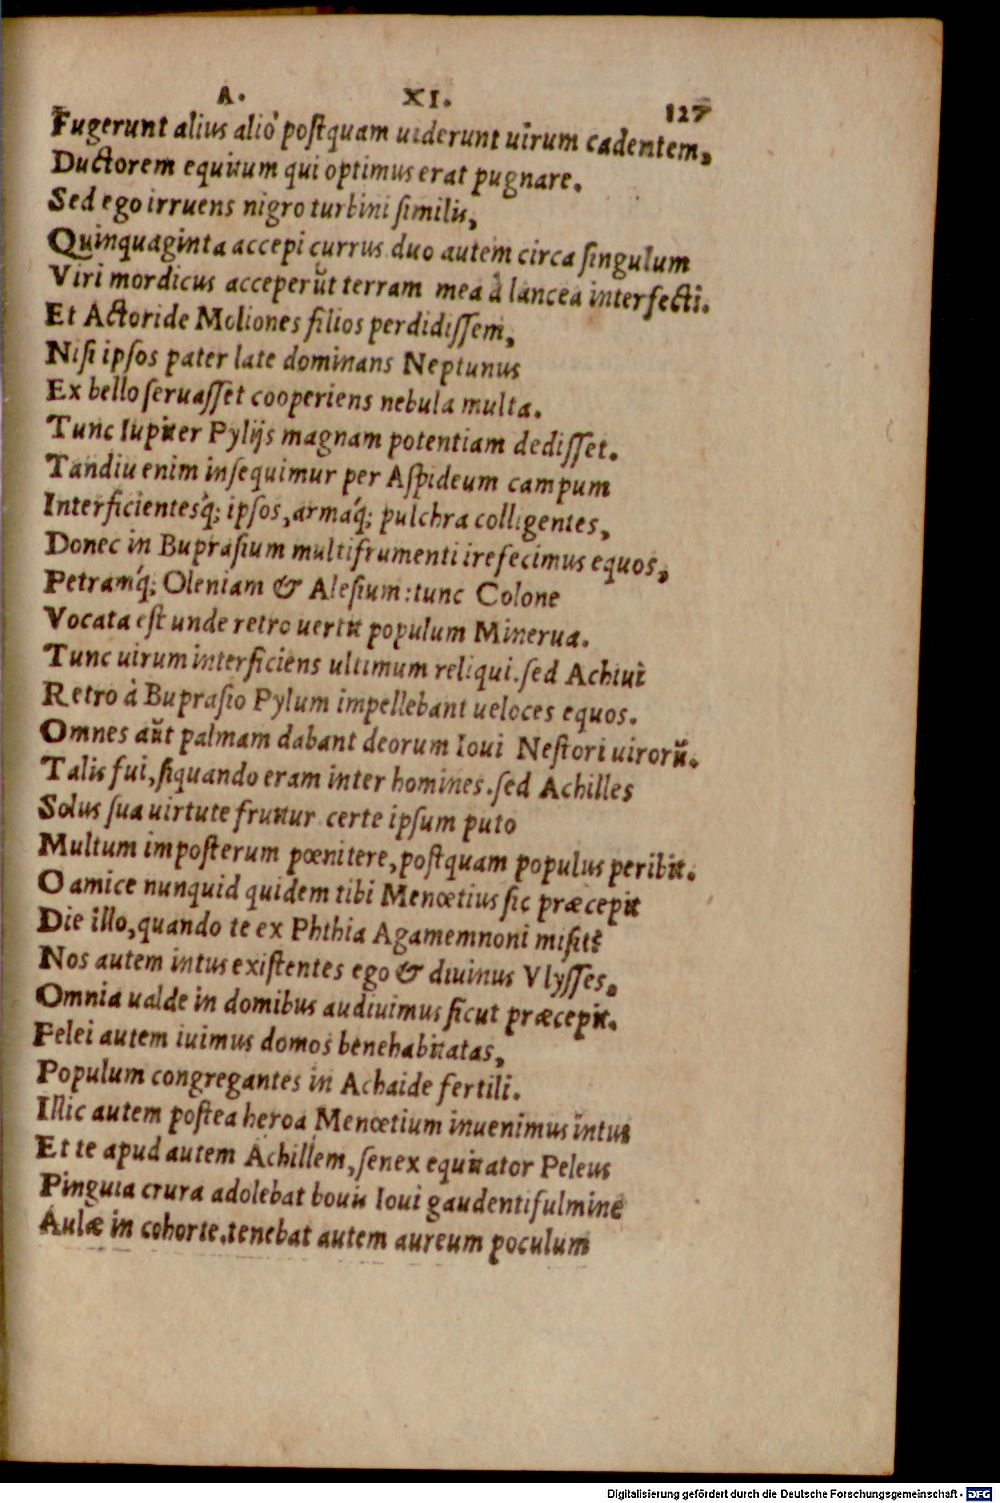 A. XI. 127
Fugerunt alius aliò postquam uiderunt uirum cadentem,
Ductorem equitum qui optimus erat pugnare.
Sed ego irruens nigro turbini similis,
Quinquaginta accepi currus duo autem circa singulum
Viri mordicus acceperũt terram mea à lancea interfecti.
Et Actoride Moliones filios perdidissem,
Nisi ipsos pater late dominans Neptunus
Ex bello seruasset cooperiens nebula multa.
Tunc Iupiter Pylijs magnam potentiam dedisset.
Tandiu enim insequimur per Aspideum campum
Interficientesq́; ipsos, armaq́; pulchra colligentes,
Donec in Buprasium multifrumenti ire fecimus equos,
Petramq́; Oleniam & Alesium: tunc Colone
Vocata est unde retro uertit populum Minerua.
Tunc uirum interficiens ultimum reliqui. sed Achiui
Retro à Buprasio Pylum impellebant ueloces equos.
Omnes aũt palmam dabant deorum Ioui Nestori uirorũ.
Talis fui, siquando eram inter homines. sed Achilles
Solus sua uirtute fruitur certe ipsum puto
Multum imposterum pœnitere, postquam populus peribit.
O amice nunquid quidem tibi Menœtius sic præcepit
Die illo, quando te ex Phthia Agamemnoni misit:
Nos autem intus existentes ego & diuinus Vlysses,
Omnia ualde in domibus audiuimus sicut præcepit.
Pelei autem iuimus domos benehabitatas,
Populum congregantes in Achaide fertili.
Illic autem postea heroa Menœtium inuenimus intus
Et te apud autem Achillem, senex equitator Peleus
Pinguia crura adolebat bouis Ioui gaudenti fulmine
Aulæ in cohorte. tenebat autem aureum poculum
Digitalisierung gefördert durch die Deutsche Forschungsgemeinschaft - DFG